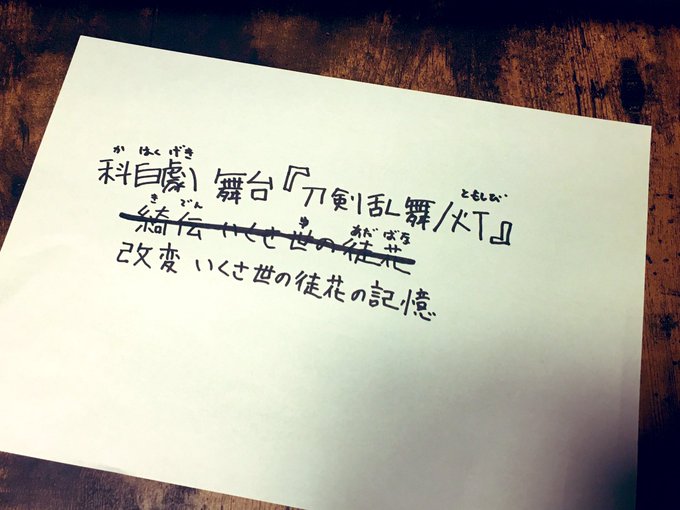 かはくげき ともしび
科白劇 舞台『刀剣乱舞/灯』
きでん ゆ あだばな
綺伝 いくさ世の徒花
改変 いくさ世の徒花の記憶